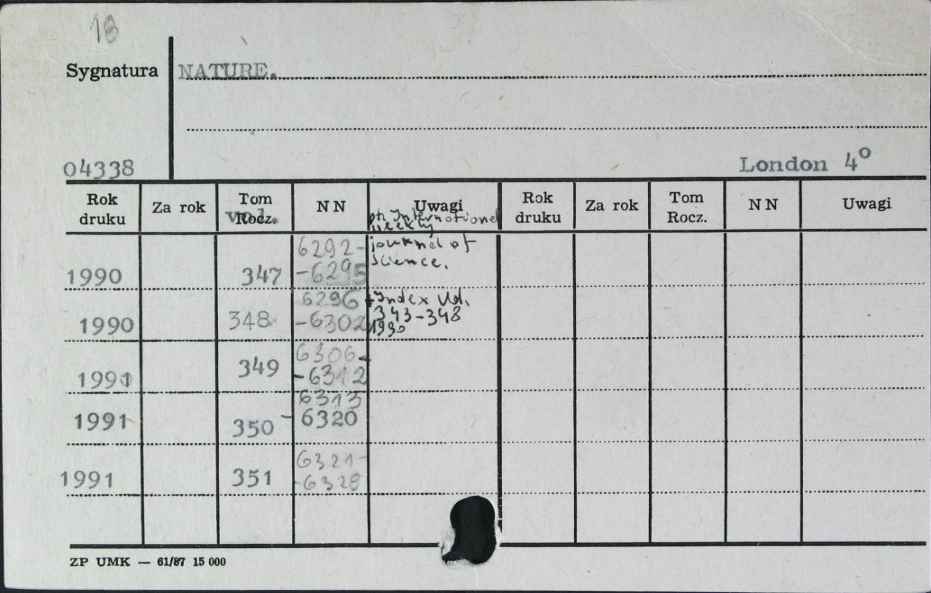 18
Sygnatura NATURE.
04338 London 4°
Rok druku Za rok Tom Rocz. vol. NN Uwagi Rok druku Za rok Tom Rocz. NN Uwagi
International weekly
journal of
science.
1990 347 6292-
-6295
1990 348 6296 +Index Vol.
-6302 343-348
1990
1991 349 6306-
-6312
1991 350 6313
-6320
1991 351 6321-
-6328
ZP UMK — 61/87 15 000